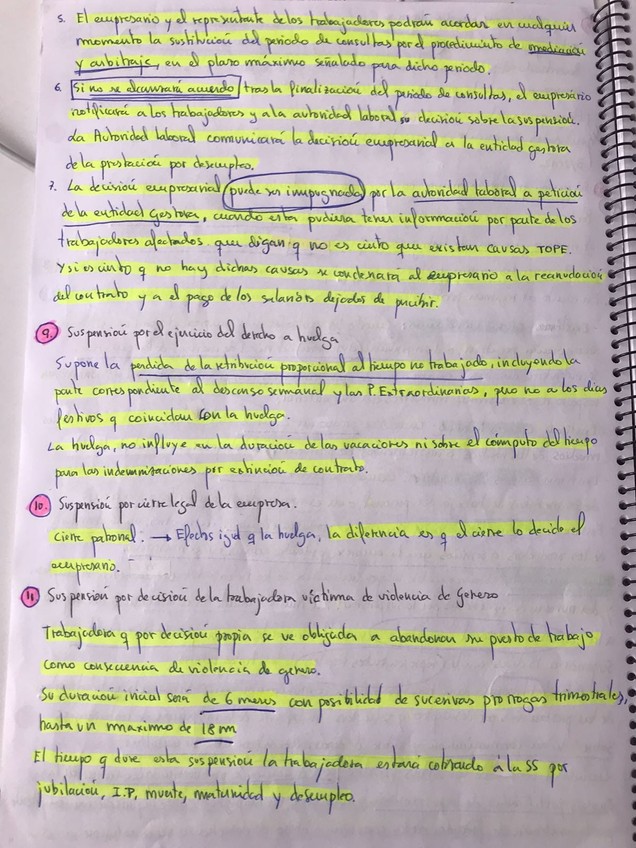 5. El empresario y el representante de los trabajadores podrán acordar en cualquier
momento la sustitución del periodo de consultas por el procedimiento de mediación
y arbitraje, en el plazo máximo señalado para dicho periodo.
6. Si no se alcanzara acuerdo tras la finalización del periodo de consultas, el empresario
notificará a los trabajadores y a la autoridad laboral su decisión sobre la suspensión.
La Autoridad laboral comunicará la decisión empresarial a la entidad gestora
de la prestación por desempleo.
7. La decisión empresarial puede ser impugnada por la autoridad laboral a petición
de la entidad gestora, cuando esta pudiera tener información por parte de los
trabajadores afectados que digan q no es cierto que existan causas TOPE.
Y si es cierto q no hay dichas causas se condenará al empresario a la reanudación
del contrato y a el pago de los salarios dejados de percibir.
9. Suspensión por el ejercicio del derecho a huelga
Supone la perdida de la retribución proporcional al tiempo no trabajado, incluyendo la
parte correspondiente al descanso semanal y las P. Extraordinarias, pero no a los días
festivos q coincidan con la huelga.
La huelga, no influye en la duración de las vacaciones ni sobre el cómputo del tiempo
para las indemnizaciones por extinción de contrato.
10. Suspensión por cierre legal de la empresa.
Cierre patronal: → Efectos igual q la huelga, la diferencia es q el cierre lo decide el
empresario.
11 Suspensión por decisión de la trabajadora víctima de violencia de genero
Trabajadora q por decisión propia se ve obligada a abandonar su puesto de trabajo
como consecuencia de violencia de genero.
Su duración inicial será de 6 meses con posibilidad de sucesivas prorrogas trimestrales,
hasta un maximo de 18 m
El tiempo q dure esta suspensión la trabajadora estará cotizando a la SS por
jubilación, I.P, muerte, maternidad y desempleo.